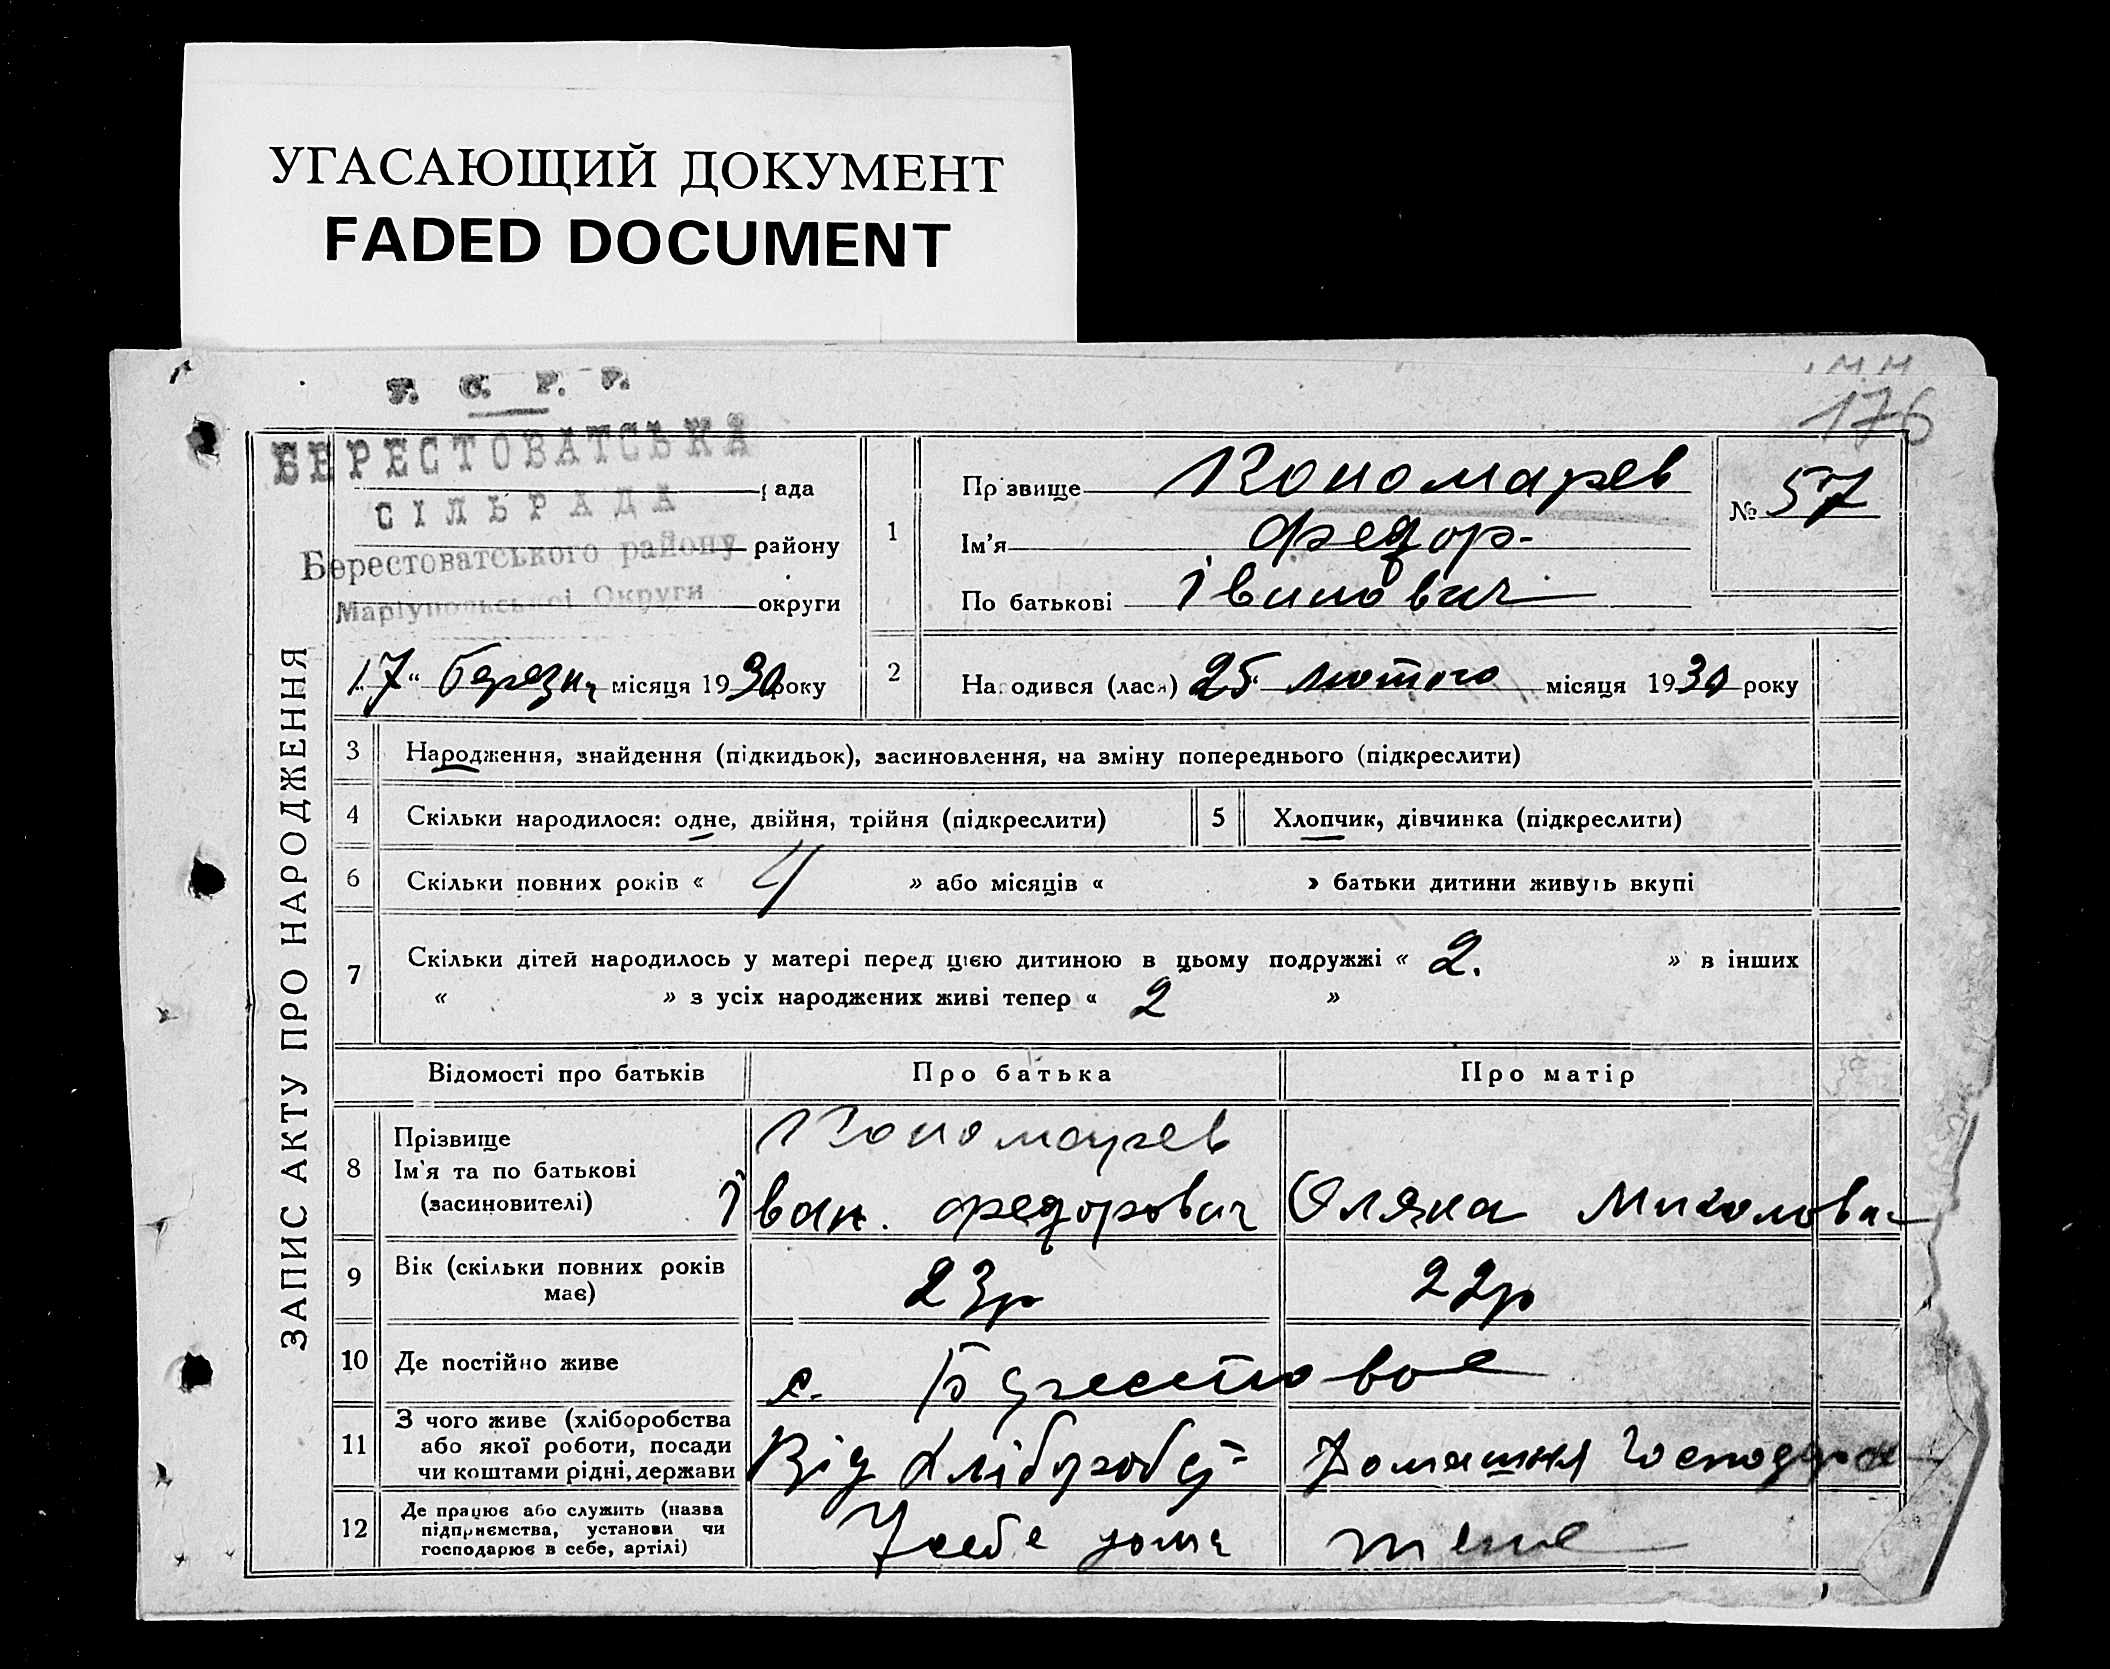 УГАСАЮЩИЙ ДОКУМЕНТ
FADED DOCUMENT
176
У. С. Р. Р.
БЕРЕСТОВАТСЬКА
рада
СІЛЬРАДА
Берестоватського району
району
Маріупольської Округи
округи
"17" березня місяця 1930 року
ЗАПИС АКТУ ПРО НАРОДЖЕННЯ
1
Прізвище Кономарев
Ім'я Федор
По батькові Іванович
№ 57
2
Народився (лася) 25 лютого місяця 1930 року
3 Народження, знайдення (підкидьок), засиновлення, на зміну попереднього (підкреслити)
4 Скільки народилося: одне, двійня, трійня (підкреслити)
5 Хлопчик, дівчинка (підкреслити)
6 Скільки повних років « 4 » або місяців « » батьки дитини живуть вкупі
7 Скільки дітей народилось у матері перед цією дитиною в цьому подружжі « 2. » в інших
« » з усіх народжених живі тепер « 2 »
Відомості про батьків Про батька Про матір
8 Прізвище
Ім'я та по батькові
(засиновителі)
Кономарев
Іван. Федорович
Миколовн
9 Вік (скільки повних років
має)
23р 22р
10 Де постійно живе
с. Берестовое
11 З чого живе (хліборобства
або якої роботи, посади
чи коштами рідні, держави
Від Хлібороб
Домашня
12 Де працює або служить (назва
підприємства, установи чи
господарює в себе, артілі)
Усебе дома теже